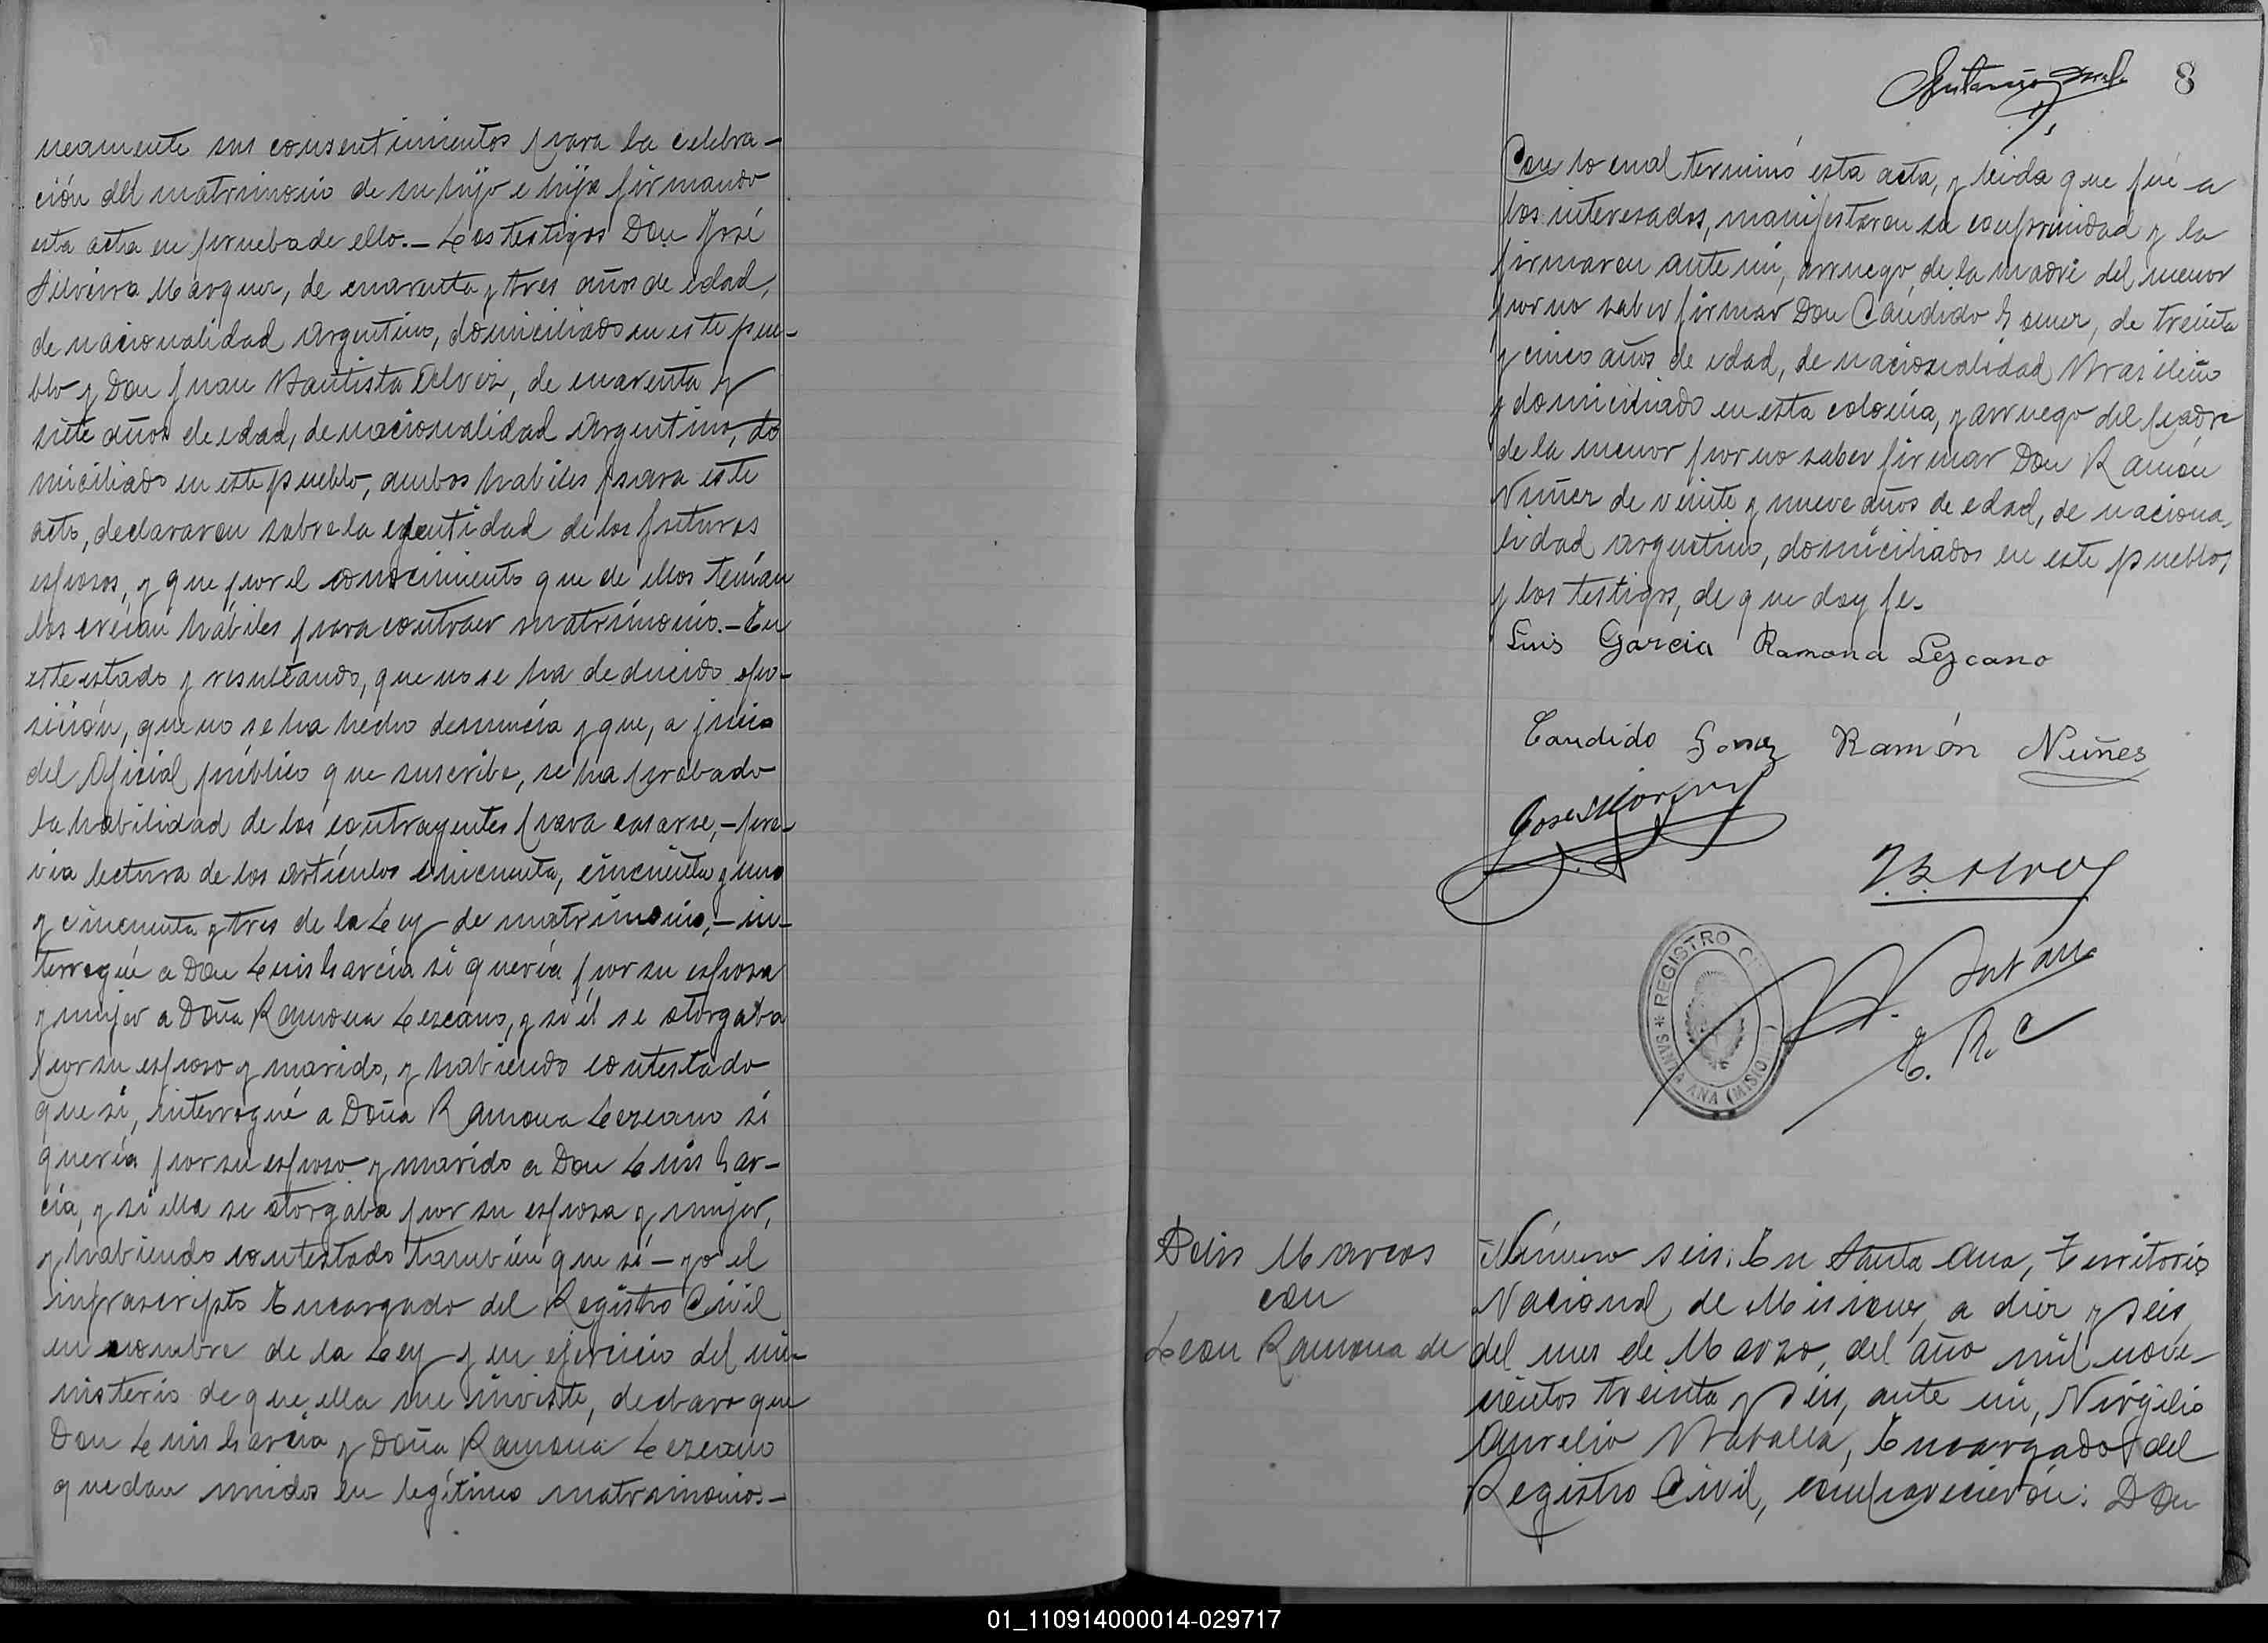 neamente sus consentimientos para la celebra-
ción del matrimonio de su hijo e hija firmando
esta acta en prueba de ello.- Los testigos Don José
Silveira Marquez, de cuarenta y tres años de edad,
de nacionalidad argentino, domiciliado en este pue-
blo y Don Juan Bautista Alvez, de cuarenta y
siete años de edad, de nacionalidad argentino, do
miciliado en este pueblo, ambos habiles para este
acto, declararon sobre la identidad de los futuros
esposos, y que por el conocimiento que de ellos tenían
los creían hábiles para contraer matrimonio.- En
este estado y resultando, que no se ha deducido opo-
sición, que no se ha hecho denuncia y que, a juicio
del Oficial público que suscribe, se ha probado
la habilidad de los contrayentes para casarse,- pre-
via lectura de los artículos cincuenta, cincuenta y uno
y cincuenta y tres de la Ley de matrimonio,- in-
terrogué a Don Luis García si quería por su esposa
y mujer a Doña Ramona Lezcano, y si él se otorgaba
por su esposo y marido, y habiendo contestado
que sí, interrogué a Doña Ramona Lezcano si
quería por su esposo y marido a Don Luis Gar-
cía, y si ella se otorgaba por su esposa y mujer,
y habiendo contestado también que sí - yo el
infrascripto Encargado del Registro Civil
en nombre de la Ley y en ejercicio del mi-
nisterio de que ella me inviste, declaro que
Don Luis García y Doña Ramona Lezcano
quedan unidos en legítimo matrimonio.-
8
Con lo cual terminó esta acta, y leida que fué a
los interesados, manifestaron su conformidad y la
firmaron ante mi, arruego de la madre del menor
por no saber firmar Don Cándido Gomez, de treinta
y cinco años de edad, de nacionalidad Brasileño
y domiciliado en esta colonia, y arruego del padre
de la menor por no saber firmar Don Ramón
Nuñez de veinte y nueve años de edad, de naciona,
lidad argentino, domiciliados en este pueblo,
y los testigos, de que doy fe.
Luis Garcia Ramona Lezcano
Candido Gomez Ramón Nuñes
J. B. Alvez
REGISTRO
SANTA ANA (MISIO
E. R. C
Marcos
con
Leon Ramona de
Número seis: En Santa Ana, Territorio
Nacional de Misiones, a diez y seis
del mes de Marzo, del año mil nove-
cientos treinta y seis, ante mi, Virgilio
Aurelio Baballa, Encargado del
Registro Civil, comparecieron: Don
01_110914000014-029717